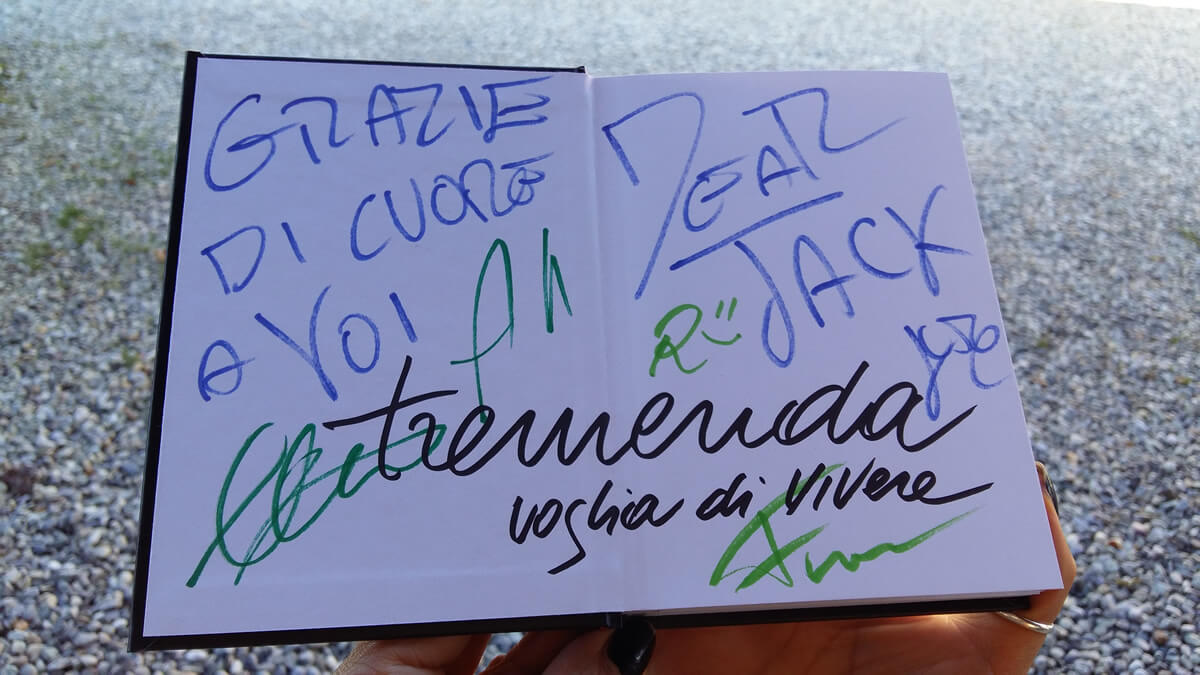 GRAZIE
DI CUORE
A VOI
DEAR
JACK
R
tremenda
voglia di vivere